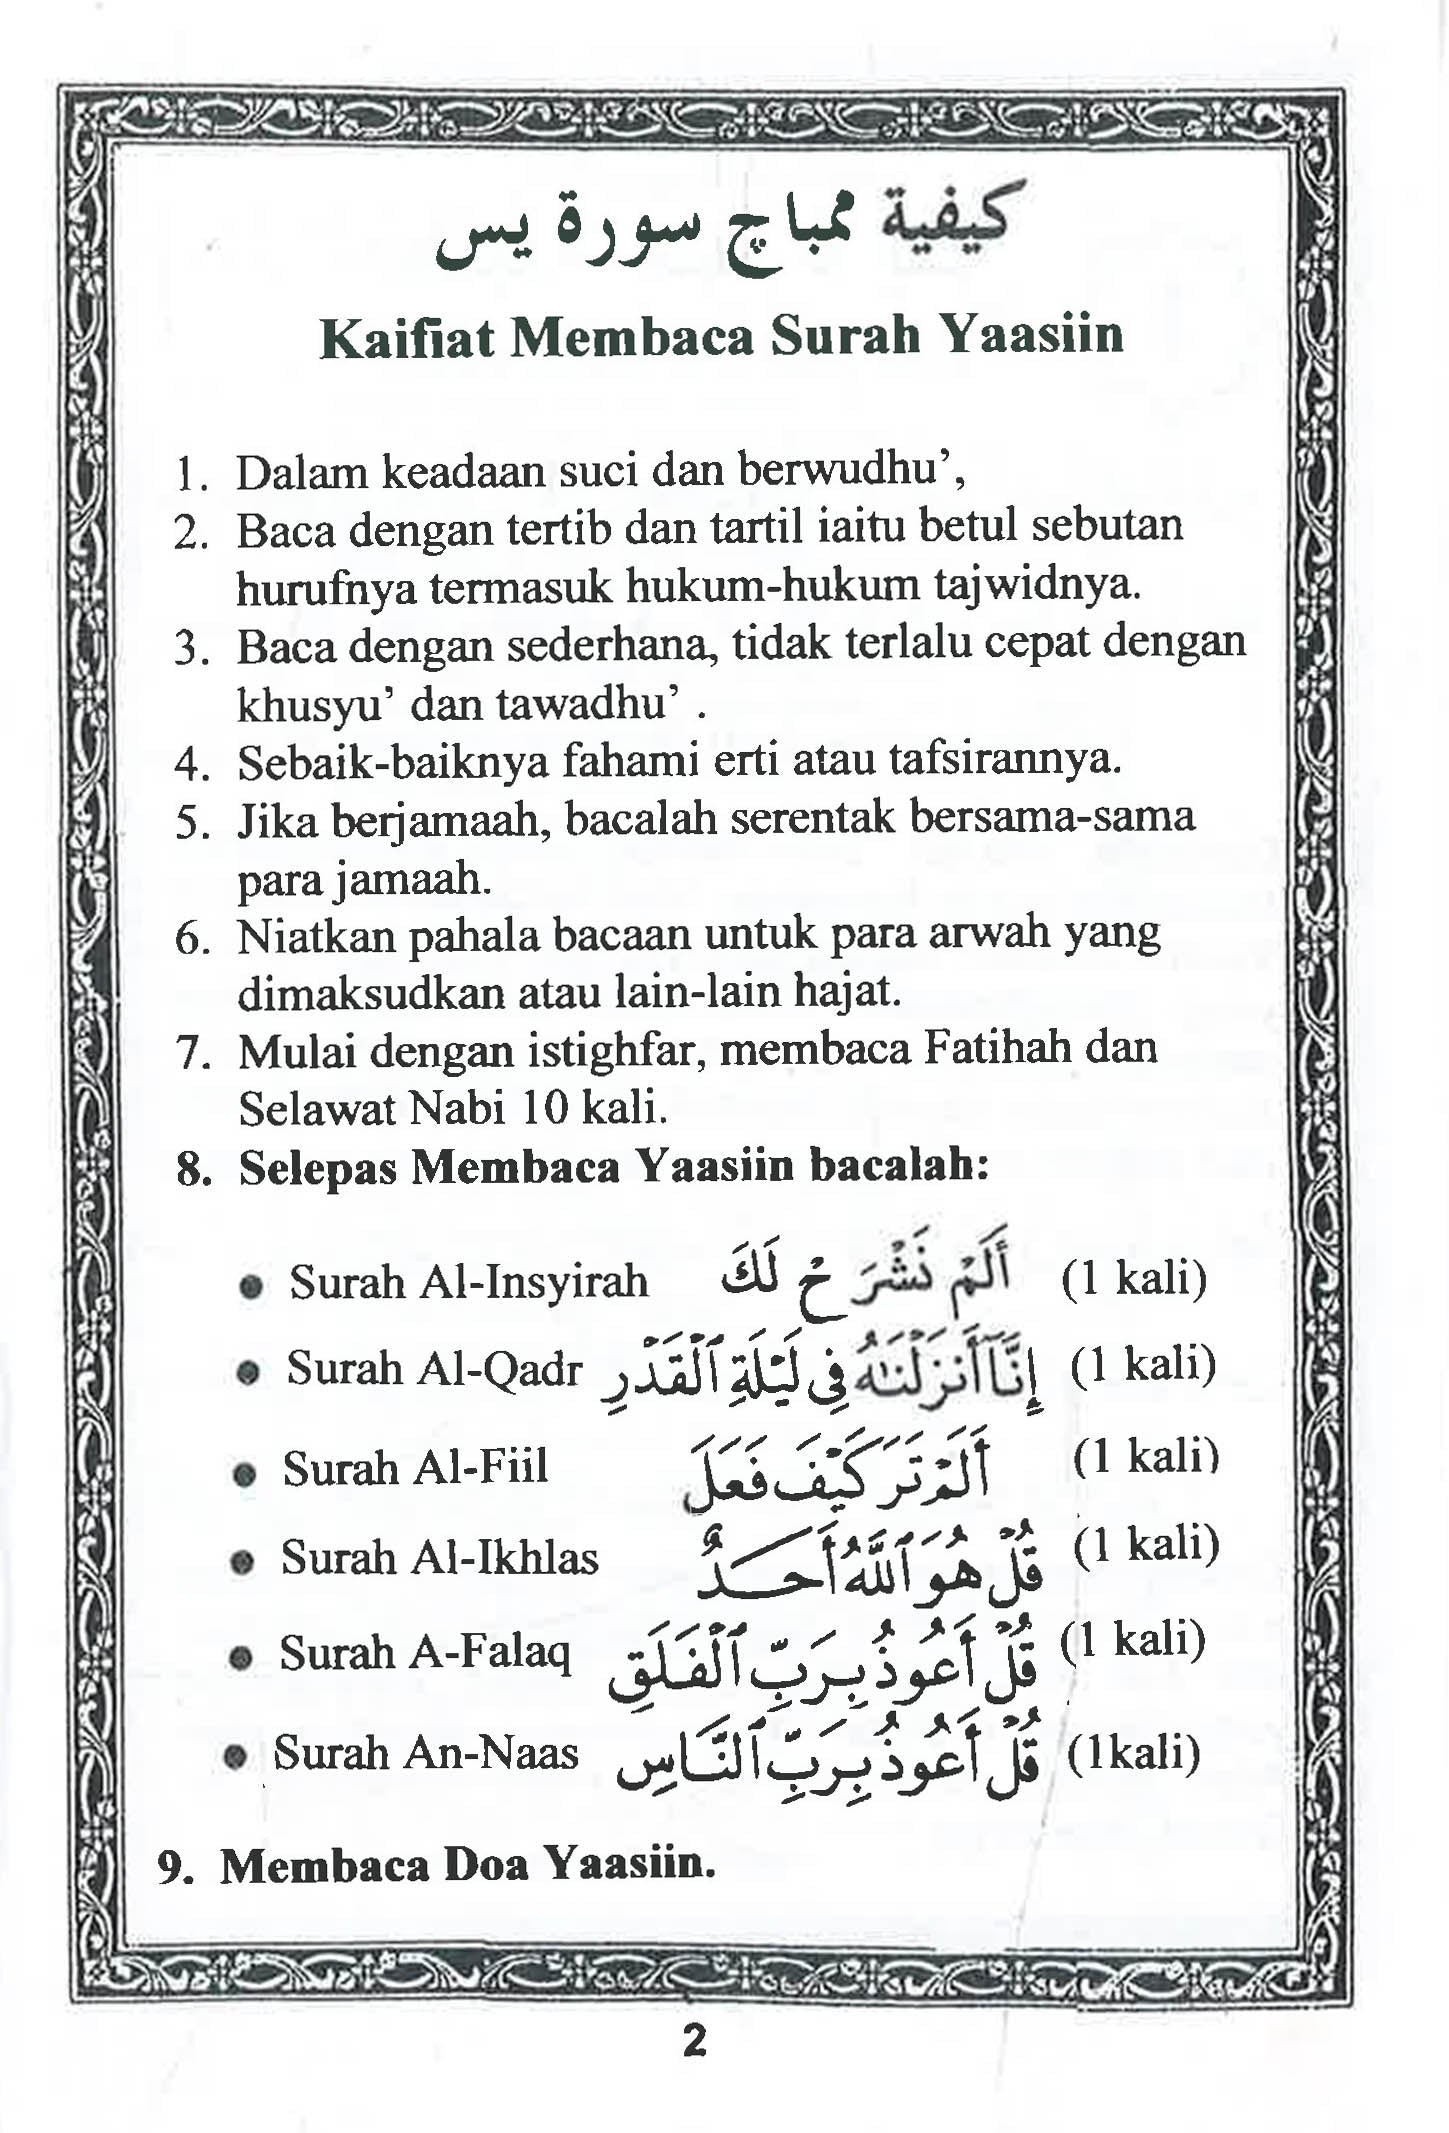 كيفية ممباچ سورة يس
Kaifiat Membaca Surah Yaasiin
1. Dalam keadaan suci dan berwudhu’,
2. Baca dengan tertib dan tartil iaitu betul sebutan
hurufnya termasuk hukum-hukum tajwidnya.
3. Baca dengan sederhana, tidak terlalu cepat dengan
khusyu’ dan tawadhu’ .
4. Sebaik-baiknya fahami erti atau tafsirannya.
5. Jika berjamaah, bacalah serentak bersama-sama
para jamaah.
6. Niatkan pahala bacaan untuk para arwah yang
dimaksudkan atau lain-lain hajat.
7. Mulai dengan istighfar, membaca Fatihah dan
Selawat Nabi 10 kali.
8. Selepas Membaca Yaasiin bacalah:
• Surah Al-Insyirah أَلَمْ نَشْرَحْ لَكَ (1 kali)
• Surah Al-Qadr إِنَّا أَنزَلْنَٰهُ فِى لَيْلَةِ ٱلْقَدْرِ (1 kali)
• Surah Al-Fiil أَلَمْ تَرَ كَيْفَ فَعَلَ (1 kali)
• Surah Al-Ikhlas قُلْ هُوَ ٱللَّهُ أَحَدٌ (1 kali)
• Surah A-Falaq قُلْ أَعُوذُ بِرَبِّ ٱلْفَلَقِ (1 kali)
• Surah An-Naas قُلْ أَعُوذُ بِرَبِّ ٱلنَّاسِ (1kali)
9. Membaca Doa Yaasiin.
2